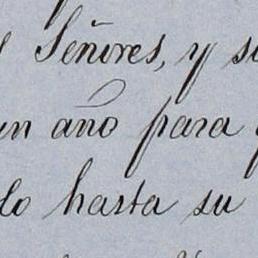 Señores, y
un año para
do hasta su